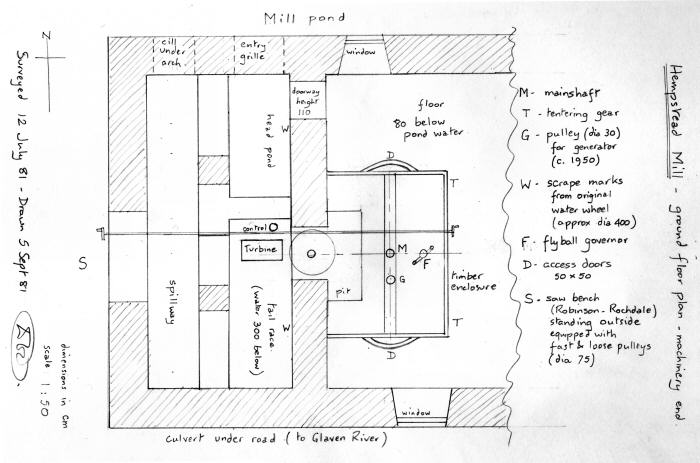 Mill pond
Hempstead Mill - ground floor plan - machinery end.
N
Surveyed 12 July 81 - Drawn 5 Sept 81
dimensions in cm
scale 1:50
cill
under
arch
entry
grille
window
doorway
height
110
floor
80 below
pond water
head pond
W
D
T
control
Turbine
S
M
F
G
pit
timber
enclosure
spillway
tail race
(water 300 below)
W
T
D
window
culvert under road (to Glaven River)
M - mainshaft
T - tentering gear
G - pulley (dia 30)
for generator
(c. 1950)
W - scrape marks
from original
water wheel
(approx dia 400)
F - flyball governor
D - access doors
50 x 50
S - saw bench
(Robinson - Rochdale)
standing outside
equipped with
fast & loose pulleys
(dia 75)